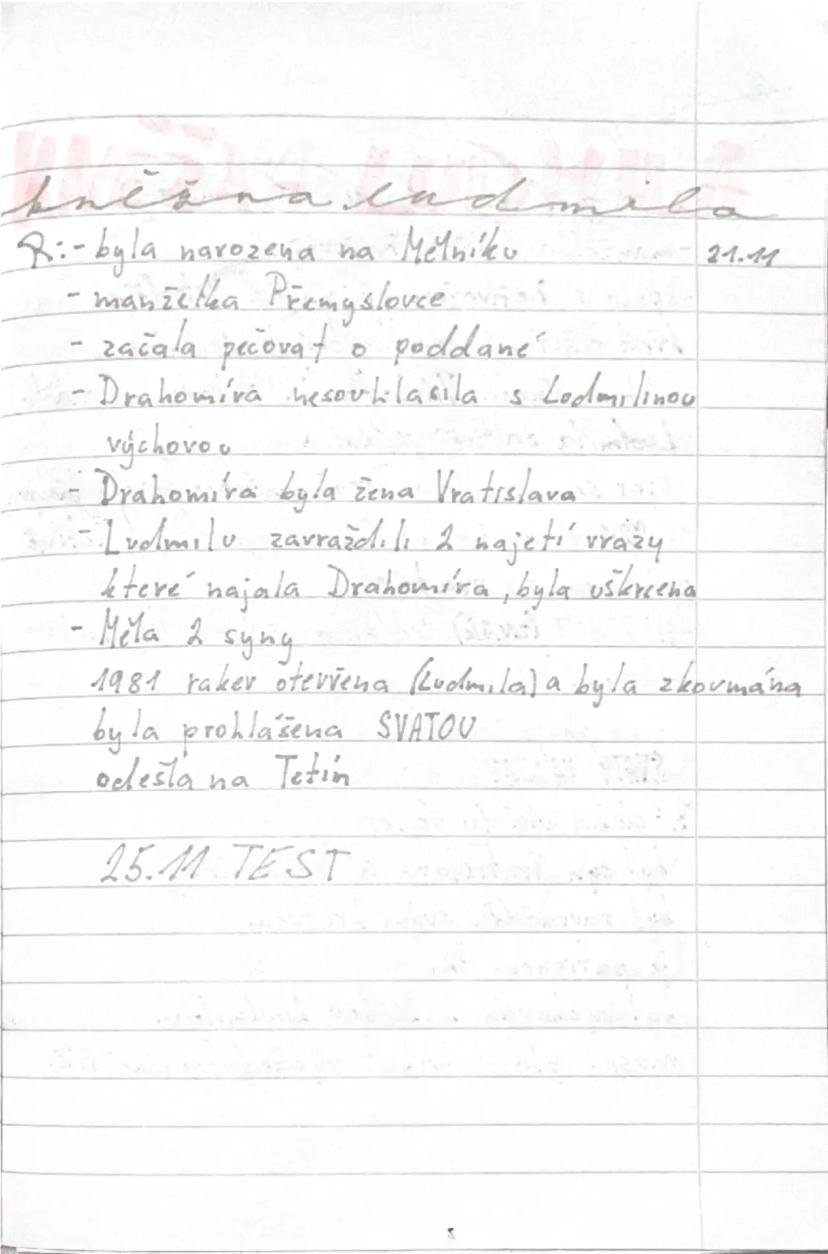 kněžna Ludmila
R:- byla narozena na Mělníku 21.11
- manželka Přemyslovce
- začala pečovat o poddané
- Drahomíra nesouhlasila s Ludmilinou
výchovou
- Drahomíra byla žena Vratislava
- Ludmilu zavraždili 2 najetí vrazy
které najala Drahomíra, byla uškrcena
- Měla 2 syny
1981 rakev otevřena (Ludmila) a byla zkoumána
byla prohlášena SVATOU
odešla na Tetín
25.11 TEST